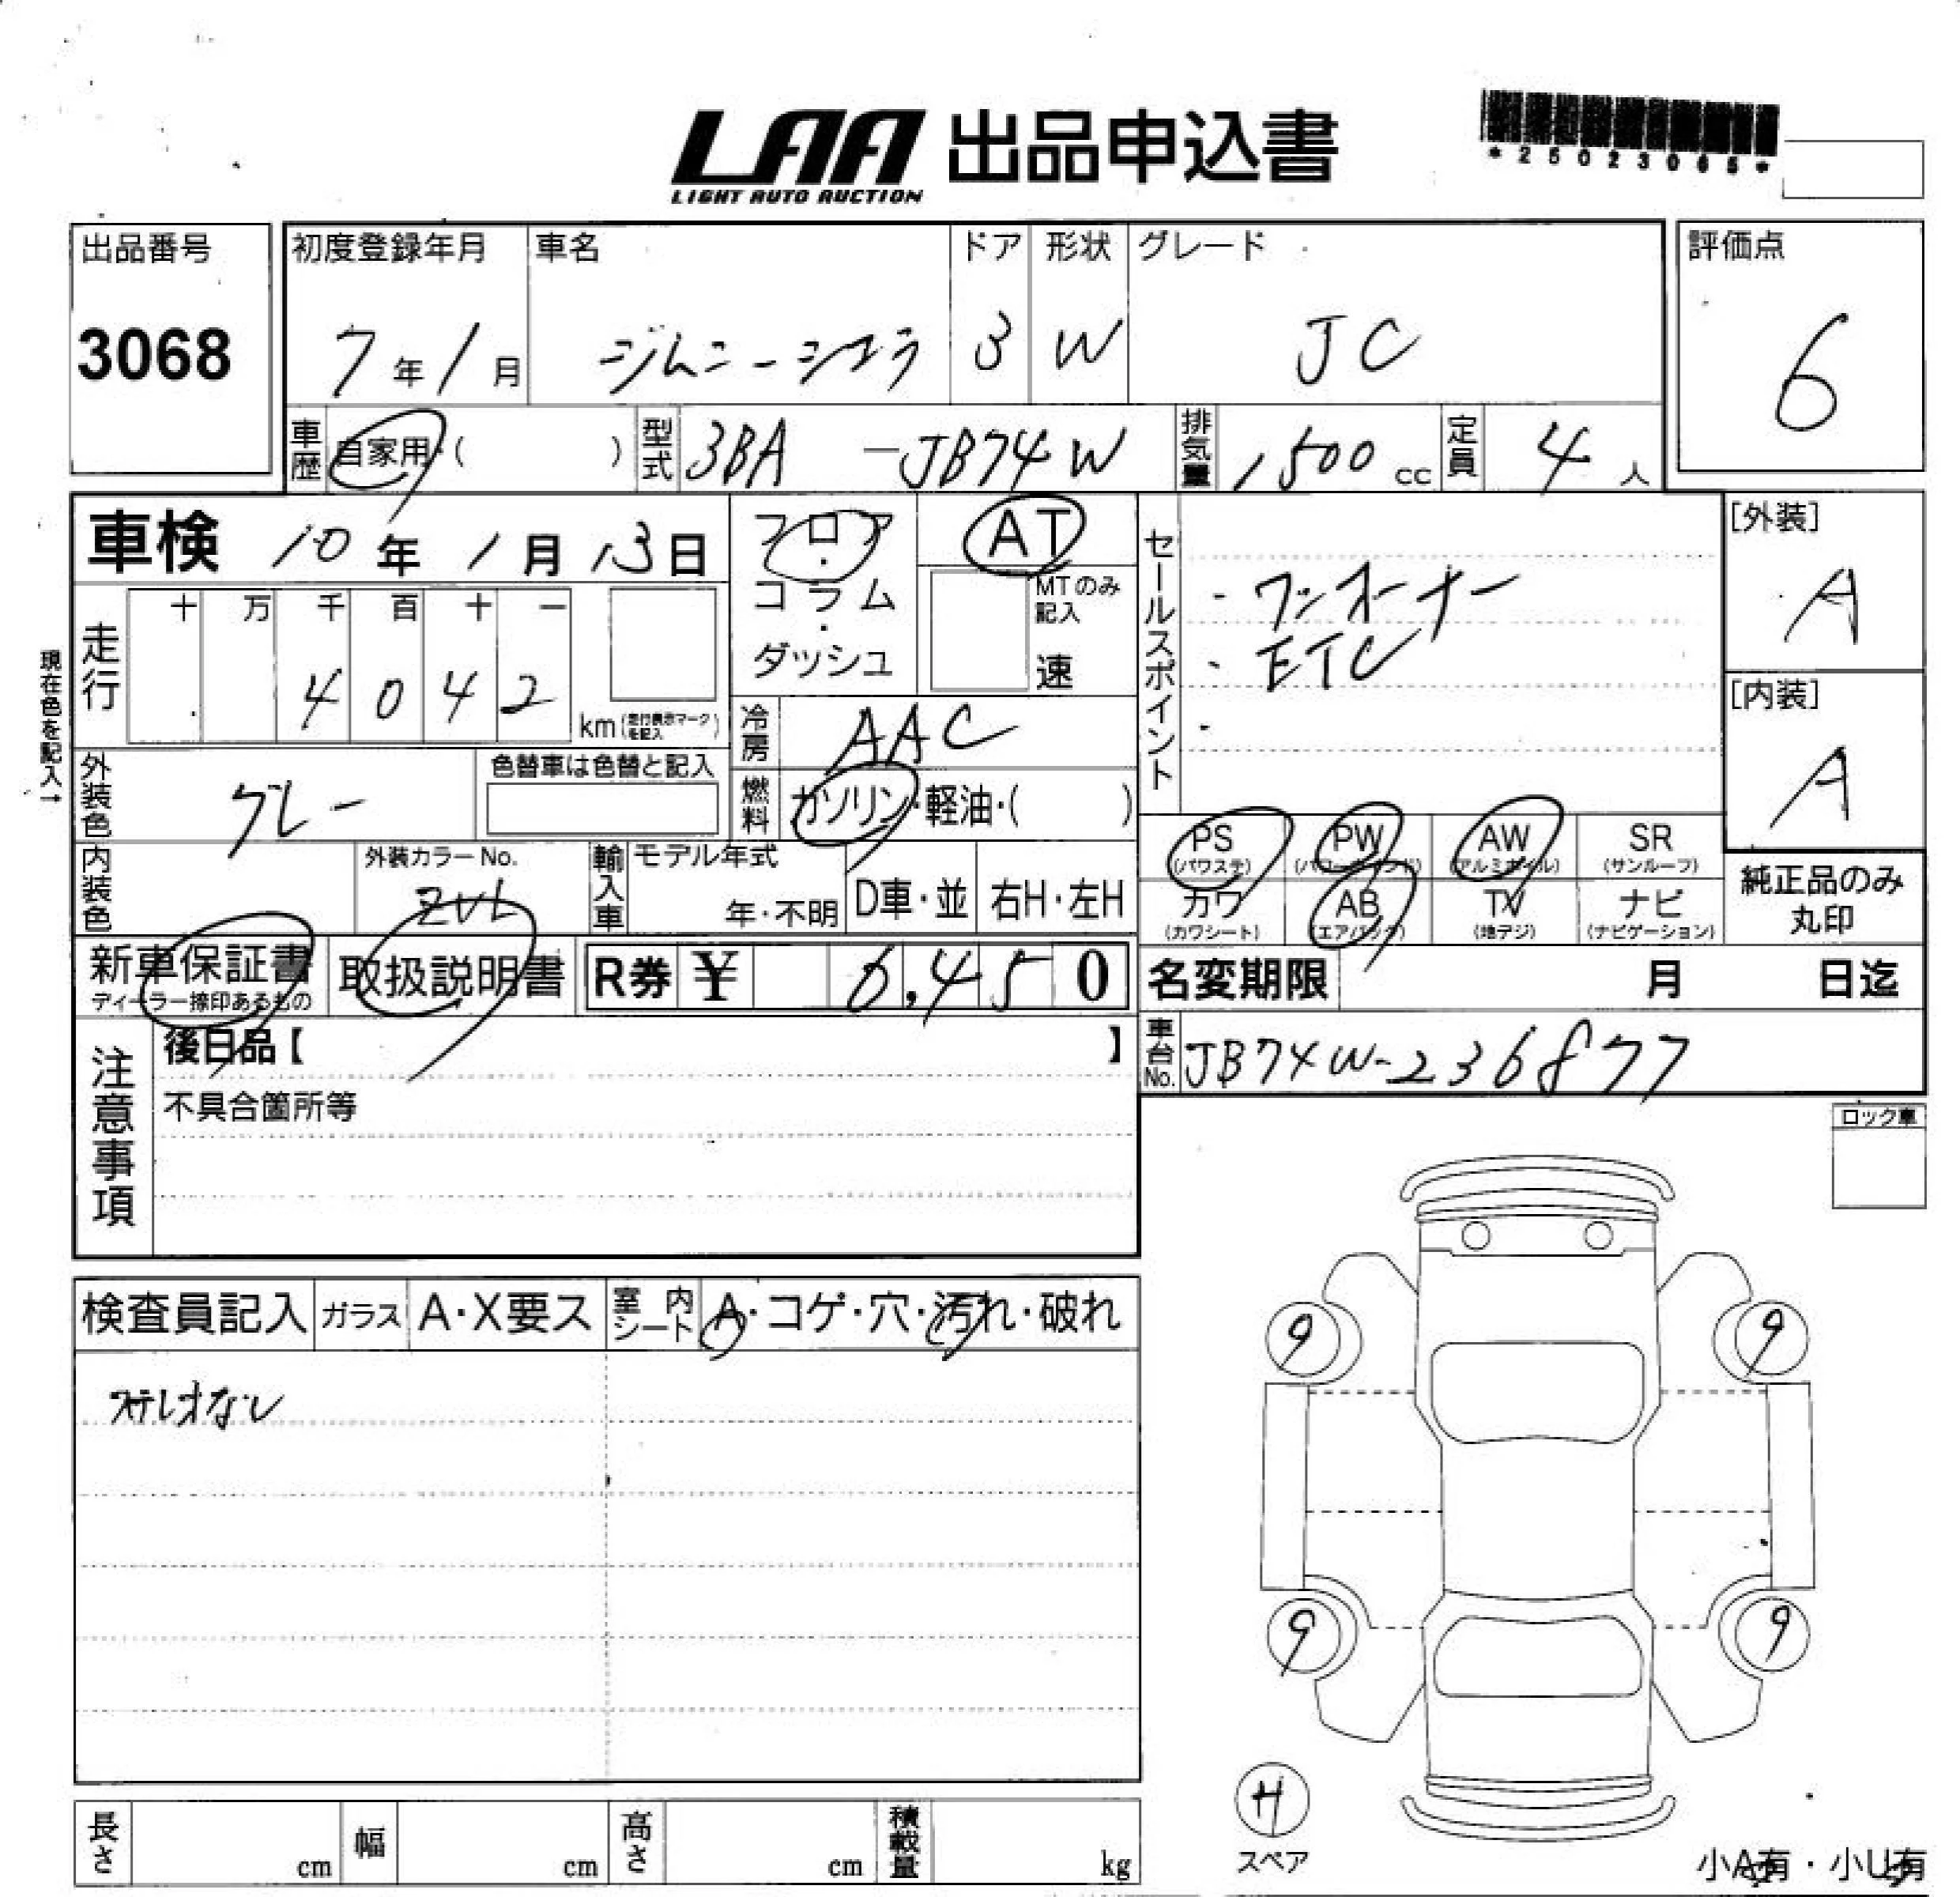 LAA 出品申込書
LIGHT AUTO AUCTION
*25023065*
出品番号
3068
初度登録年月
7年1月
車名
ジムニーシエラ
ドア
3
形状
W
グレード
JC
評価点
6
車歴
自家用・( )
型式
3BA-JB74W
排気量
1,500cc
定員
4人
車検 10年1月13日
フロア・コラム・ダッシュ
AT
MTのみ記入
速
セールスポイント
・ワンオーナー
・ETC
・
[外装]
A
[内装]
A
現在色を記入→
走行
十 万 千 百 十 一
4 0 4 2
km(走行表示マークを記入)
冷房
AAC
外装色
グレー
色替車は色替と記入
燃料
ガソリン・軽油・( )
PS
(パワステ)
PW
(パワーウインド)
AW
(アルミホイル)
SR
(サンルーフ)
内装色
外装カラーNo.
ZVL
輸入車
モデル年式
年・不明
D車・並
右H・左H
カワ
(カワシート)
AB
(エアバッグ)
TV
(地デジ)
ナビ
(ナビゲーション)
純正品のみ
丸印
新車保証書
ディーラー捺印あるもの
取扱説明書
R券 ¥ 6,450
名変期限 月 日迄
注意事項
後日品【 】
不具合箇所等
車台No.
JB74W-236877
ロック車
検査員記入
ガラス
A・X要ス
室内シート
A・コゲ・穴・汚れ・破れ
ステレオなし
9
9
9
9
H
スペア
長さ cm
幅 cm
高さ cm
積載量 kg
小A有・小U有